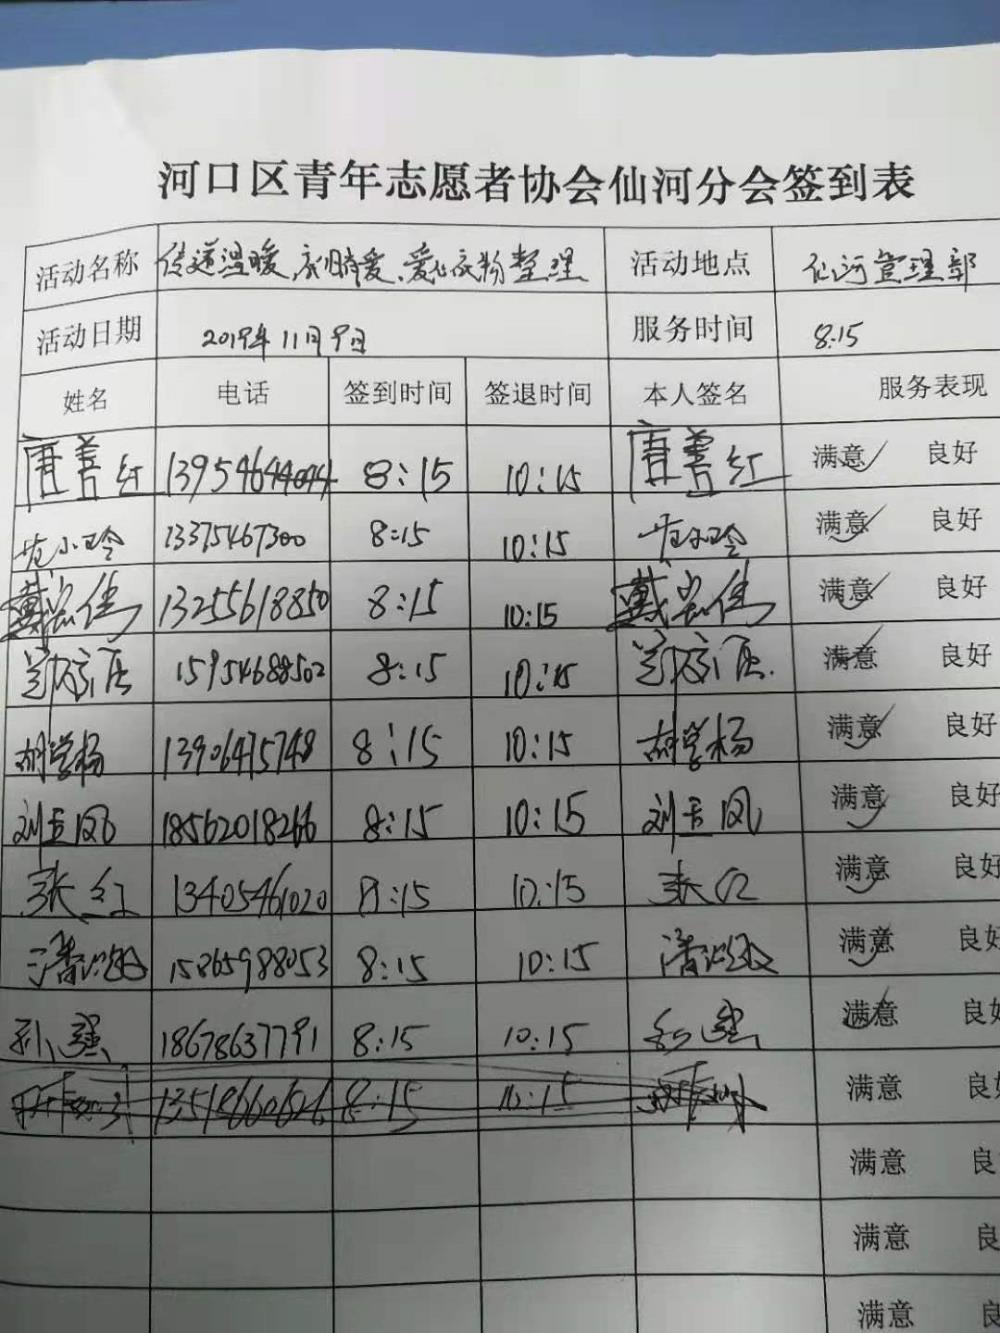 河口区青年志愿者协会仙河分会签到表
活动名称 传递温暖, 爱心衣物整理 活动地点 仙河管理部
活动日期 2019年11月9日 服务时间 8:15
姓名 电话 签到时间 签退时间 本人签名 服务表现
唐善红 13954644044 8:15 10:15 唐善红 满意 良好
范小玲 13375467300 8:15 10:15 范小玲 满意 良好
戴宏伟 13255618850 8:15 10:15 戴宏伟 满意 良好
15954688502 8:15 10:15 满意 良好
胡学杨 13906475748 8:15 10:15 胡学杨 满意 良好
刘玉凤 18562018266 8:15 10:15 刘玉凤 满意 良好
张红 13405461020 8:15 10:15 张红 满意 良好
潘 15865988053 8:15 10:15 潘 满意 良好
孙强 18678637791 8:15 10:15 孙强 满意 良好
13518660626 8:15 10:15 满意 良
满意 良
满意 良
满意 良